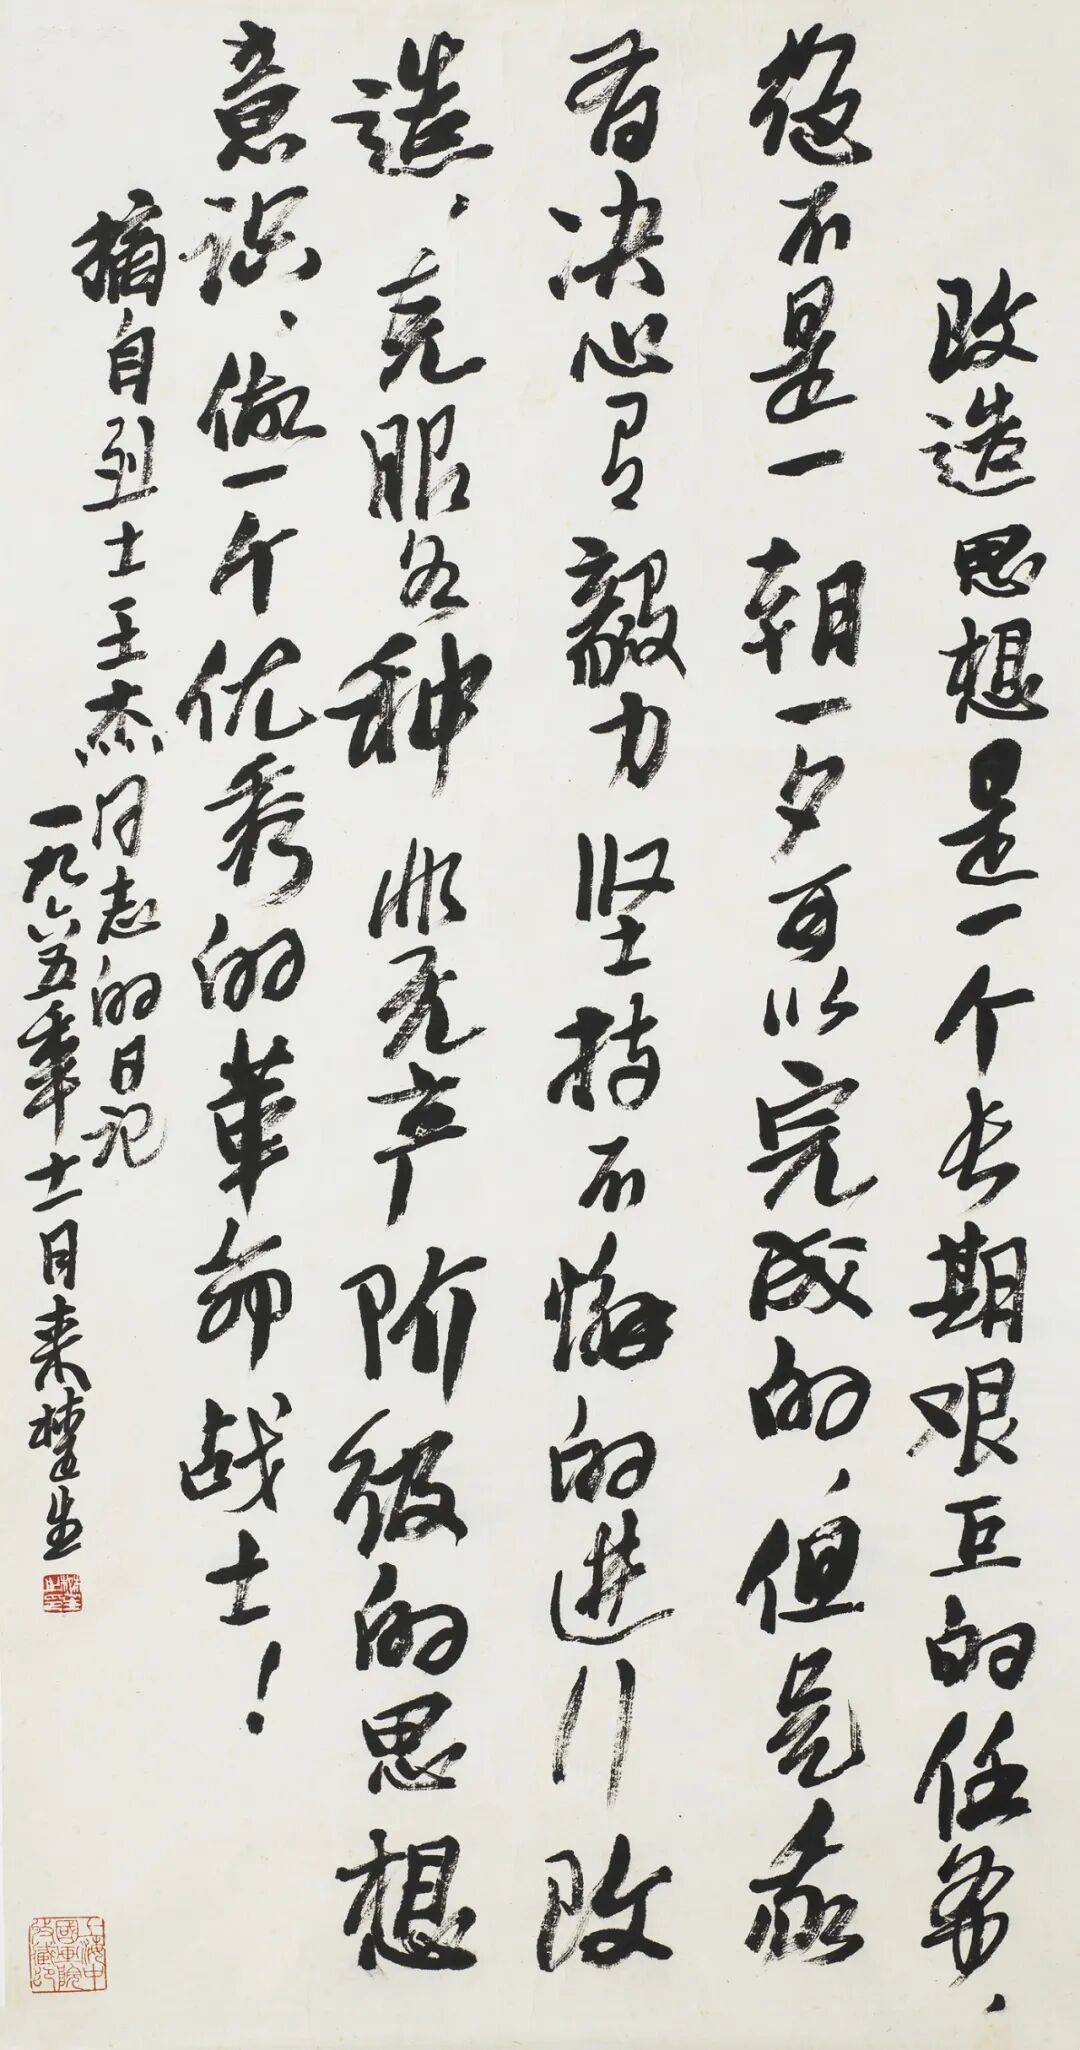 改造思想是一个长期艰巨的任务，
绝不是一朝一夕可以完成的，但是我
有决心有毅力坚持不懈的进行改
造，克服各种非无产阶级的思想
意识，做一个优秀的革命战士！
摘自烈士王杰同志的日记
一九六五年十一月来楚生
楚生之印
上海中國画院收藏印